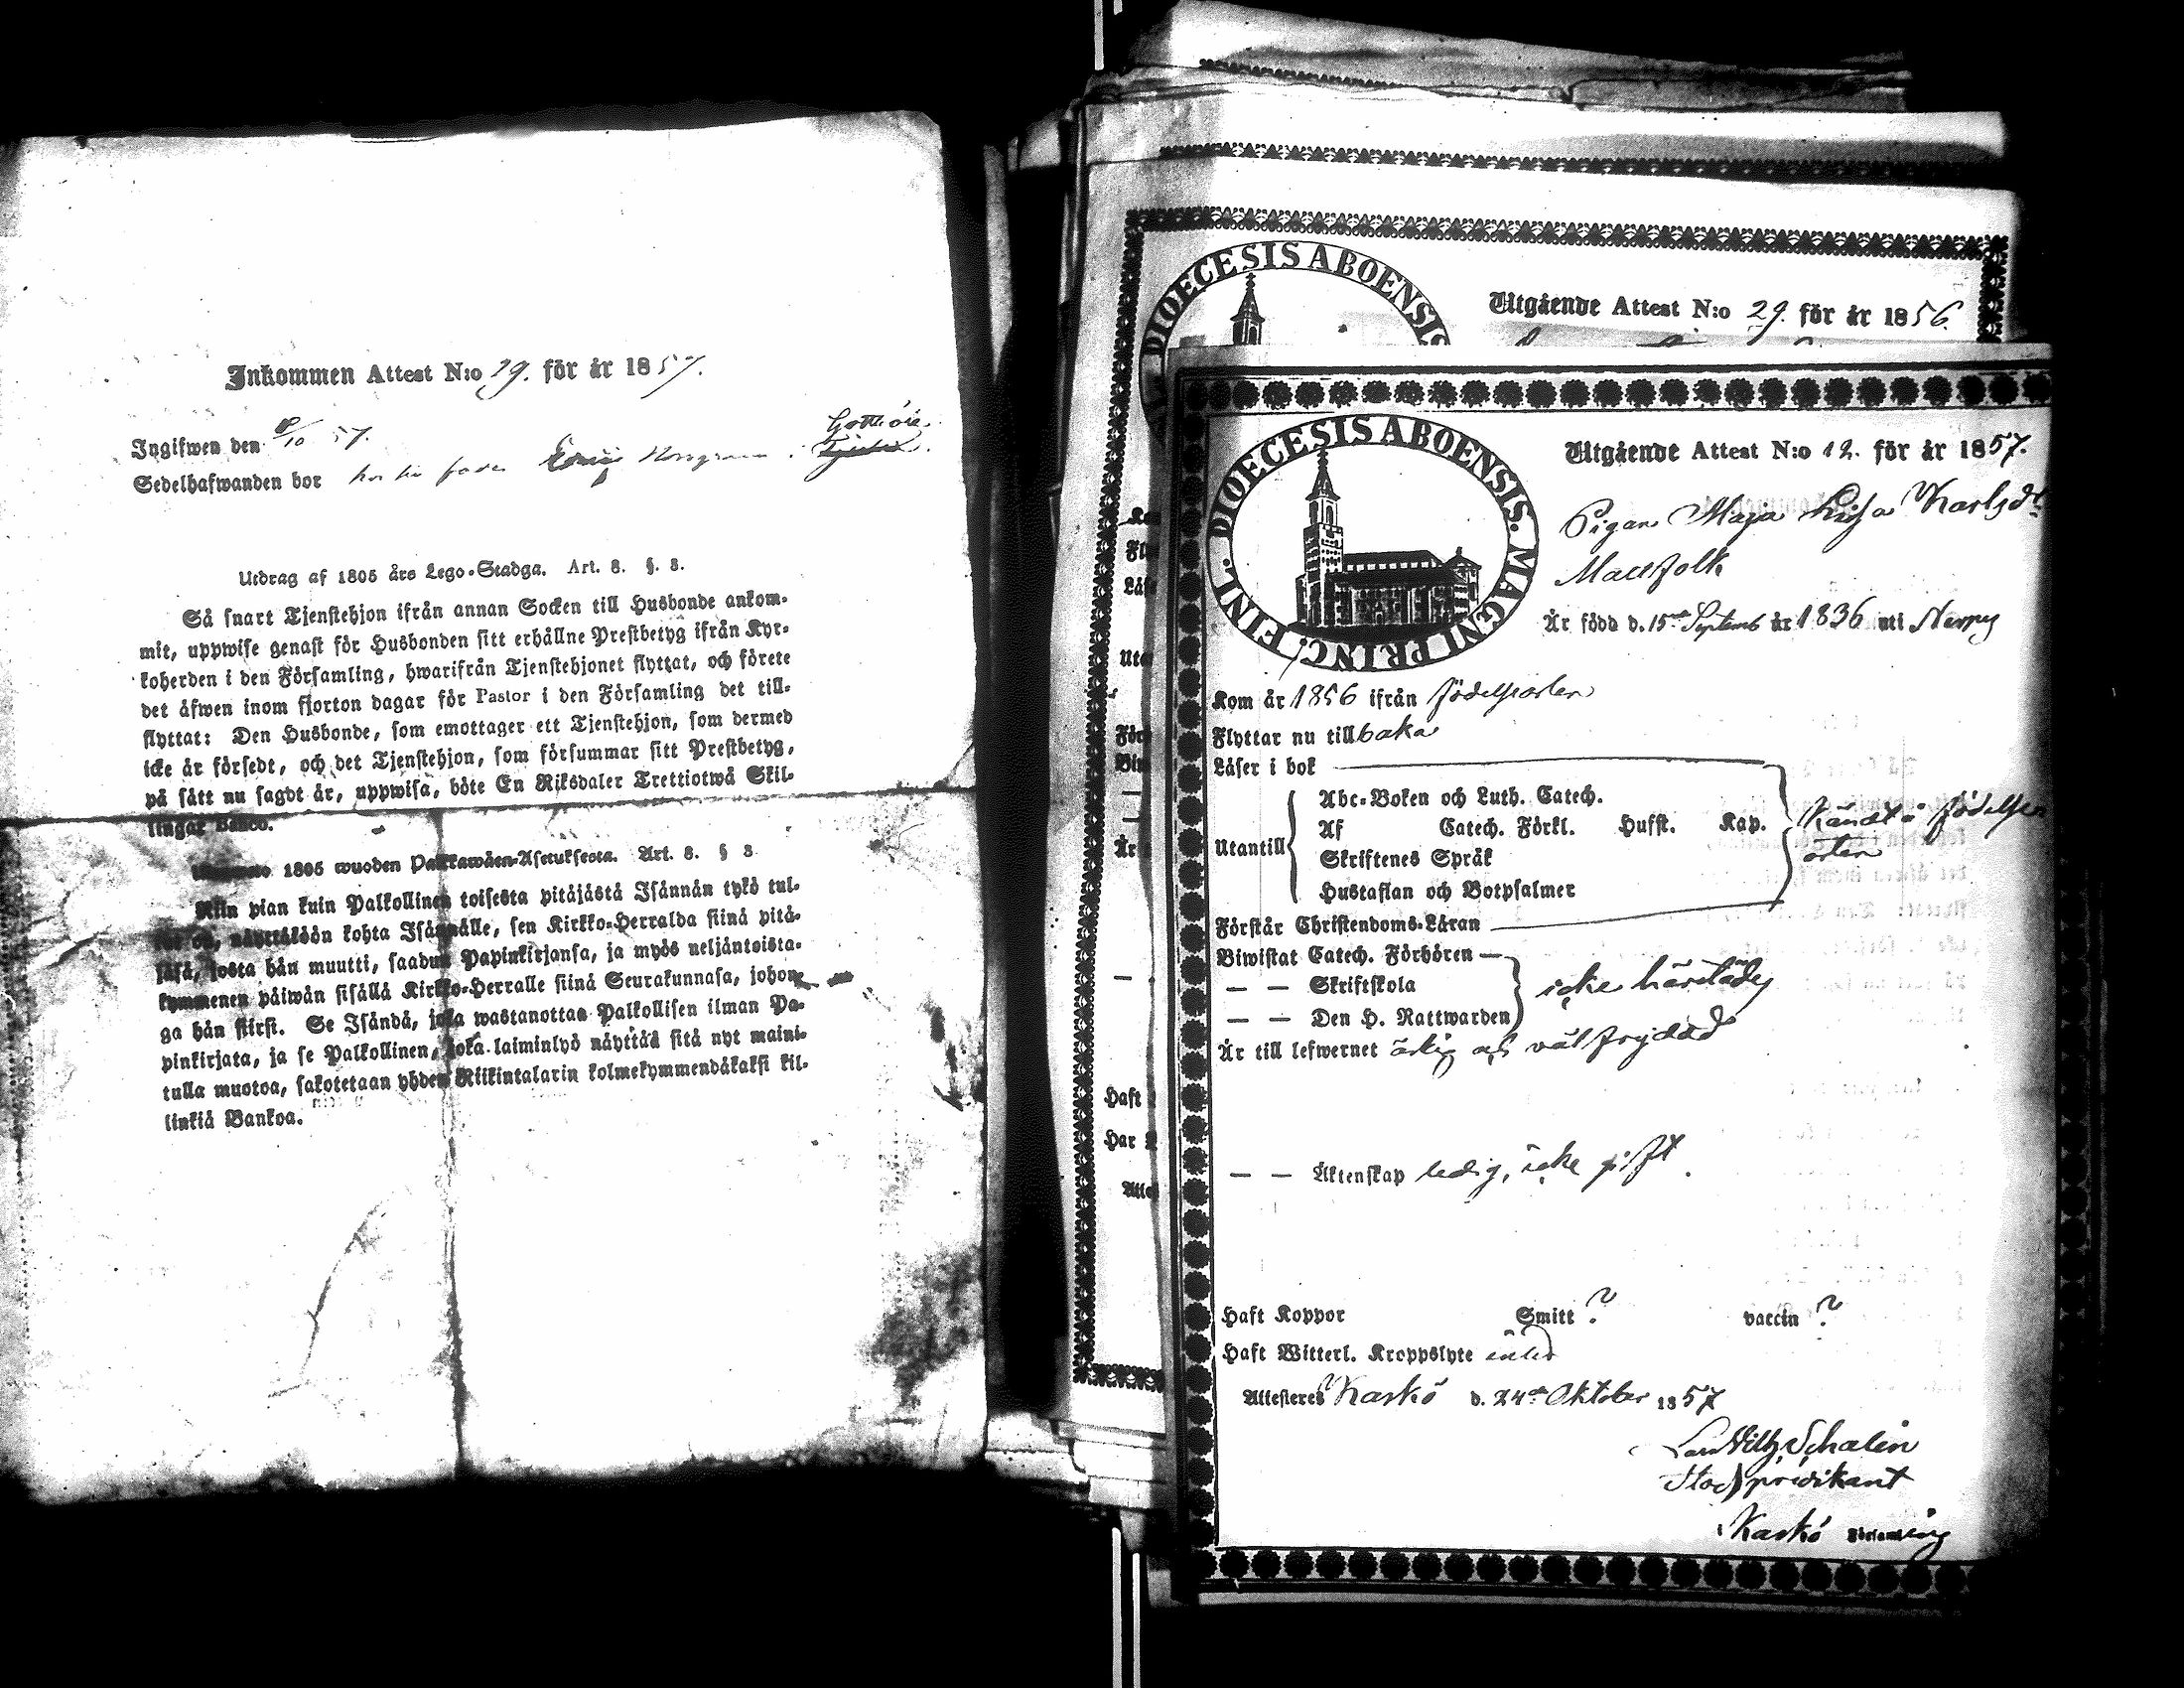 Inkommen Attest N:o 29. för år 1857.
Ingifwen den /10 57.
Sedelhafwanden bor hos sin fader
Utdrag af 1805 års Lego-Stadga. Art. 8. §. 3.
Så snart Tjenstehjon ifrån annan Socken till Husbonde ankom-
mit, uppwise genast för Husbonden sitt erhållne Prestbetyg ifrån Kyr-
koherden i den Församling, hwarifrån Tjenstehjonet flyttat, och förete
det äfwen inom fjorton dagar för Pastor i den Församling det till-
flyttat: Den Husbonde, som emottager ett Tjenstehjon, som dermed
icke är försedt, och det Tjenstehjon, som försummar sitt Prestbetyg,
på sätt nu sagdt är, uppwisa, böte En Riksdaler Trettiotwå Skil-
lingar Banco.
1805 wuoden Palkkawäen-Asetuksesta. Art. 8. § 3
Niin pian kuin Palkollinen toisesta pitäjästä Isännän tykö tul-
lut on, näyttäköön kohta Isännälle, sen Kirkko-Herralda siinä pitä-
jäsä, josta hän muutti, saadun Papinkirjansa, ja myös neljäntoista-
kymmenen päiwän sisällä Kirkko-Herralle siinä Seurakunnasa, johon-
ga hän siirsi. Se Isändä, joka wastanottaa Palkollisen ilman Pa-
pinkirjata, ja se Palkollinen, joka laiminlyö näyttää sitä nyt maini-
tulla muotoa, sakotetaan yhden Riikintalarin kolmekymmendäkaksi kil-
linkiä Bankoa.
DIOECESIS ABOENSIS
Utgående Attest N:o 29. för år 1856.
DIOECESIS ABOENSIS. MAGNI PRINC. FINL.
Utgående Attest N:o 12. för år 1857.
Pigan Maja Lisa Karlsdr
Mattfolk
Är född d. 15de Septemb år 1836 uti Nerpes
Kom år 1856 ifrån födelseorten
Flyttar nu tillbaka
Läser i bok
Utantill
Abc-Boken och Luth. Catech.
Af Catech. Förkl. Husft. Kap.
Skriftenes Språk
Hustaflan och Botpsalmer
Kändt i födelse
orten
Förstår Christendoms-Läran
Biwistat Catech. Förhören
— — Skriftskola
— — Den H. Nattwarden
icke härstädes
Är till lefwernet ärlig och välfrejdad
— — Äktenskap ledig, icke gift.
Haft Koppor Smitt ? vaccin ?
Haft Witterl. Kroppslyte
Attesteres Kaskö d. 24de Oktober 1857
Lars Wilh. Schalin
Stadspredikant
i Kaskö Församling